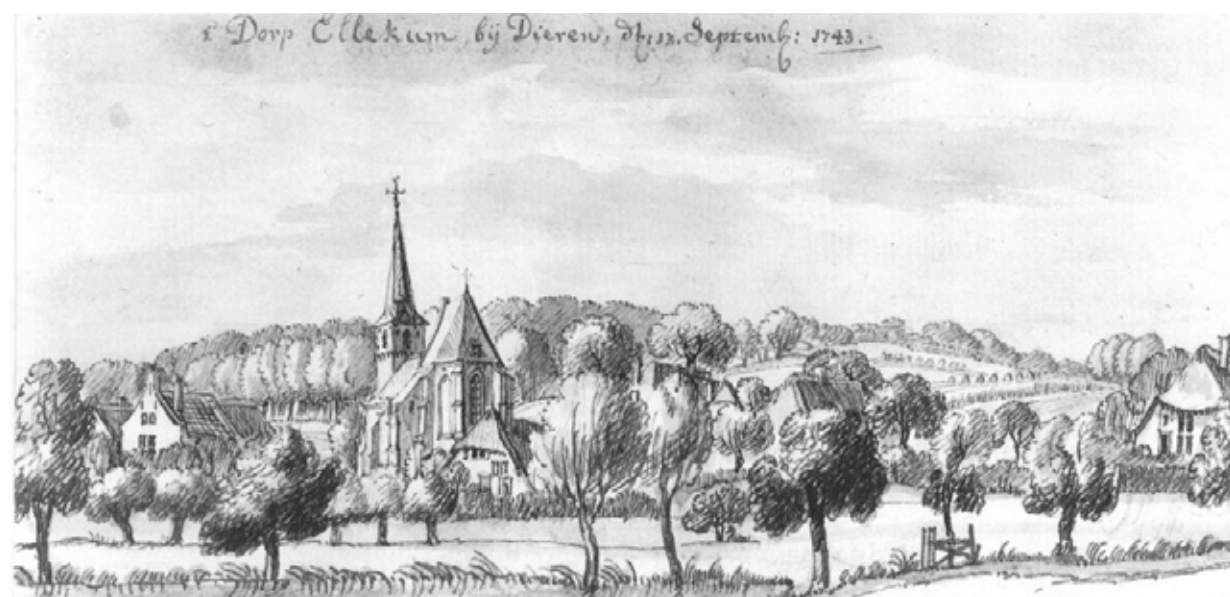 t' Dorp Ellekum, bij Dieren, Septemb: 1743.